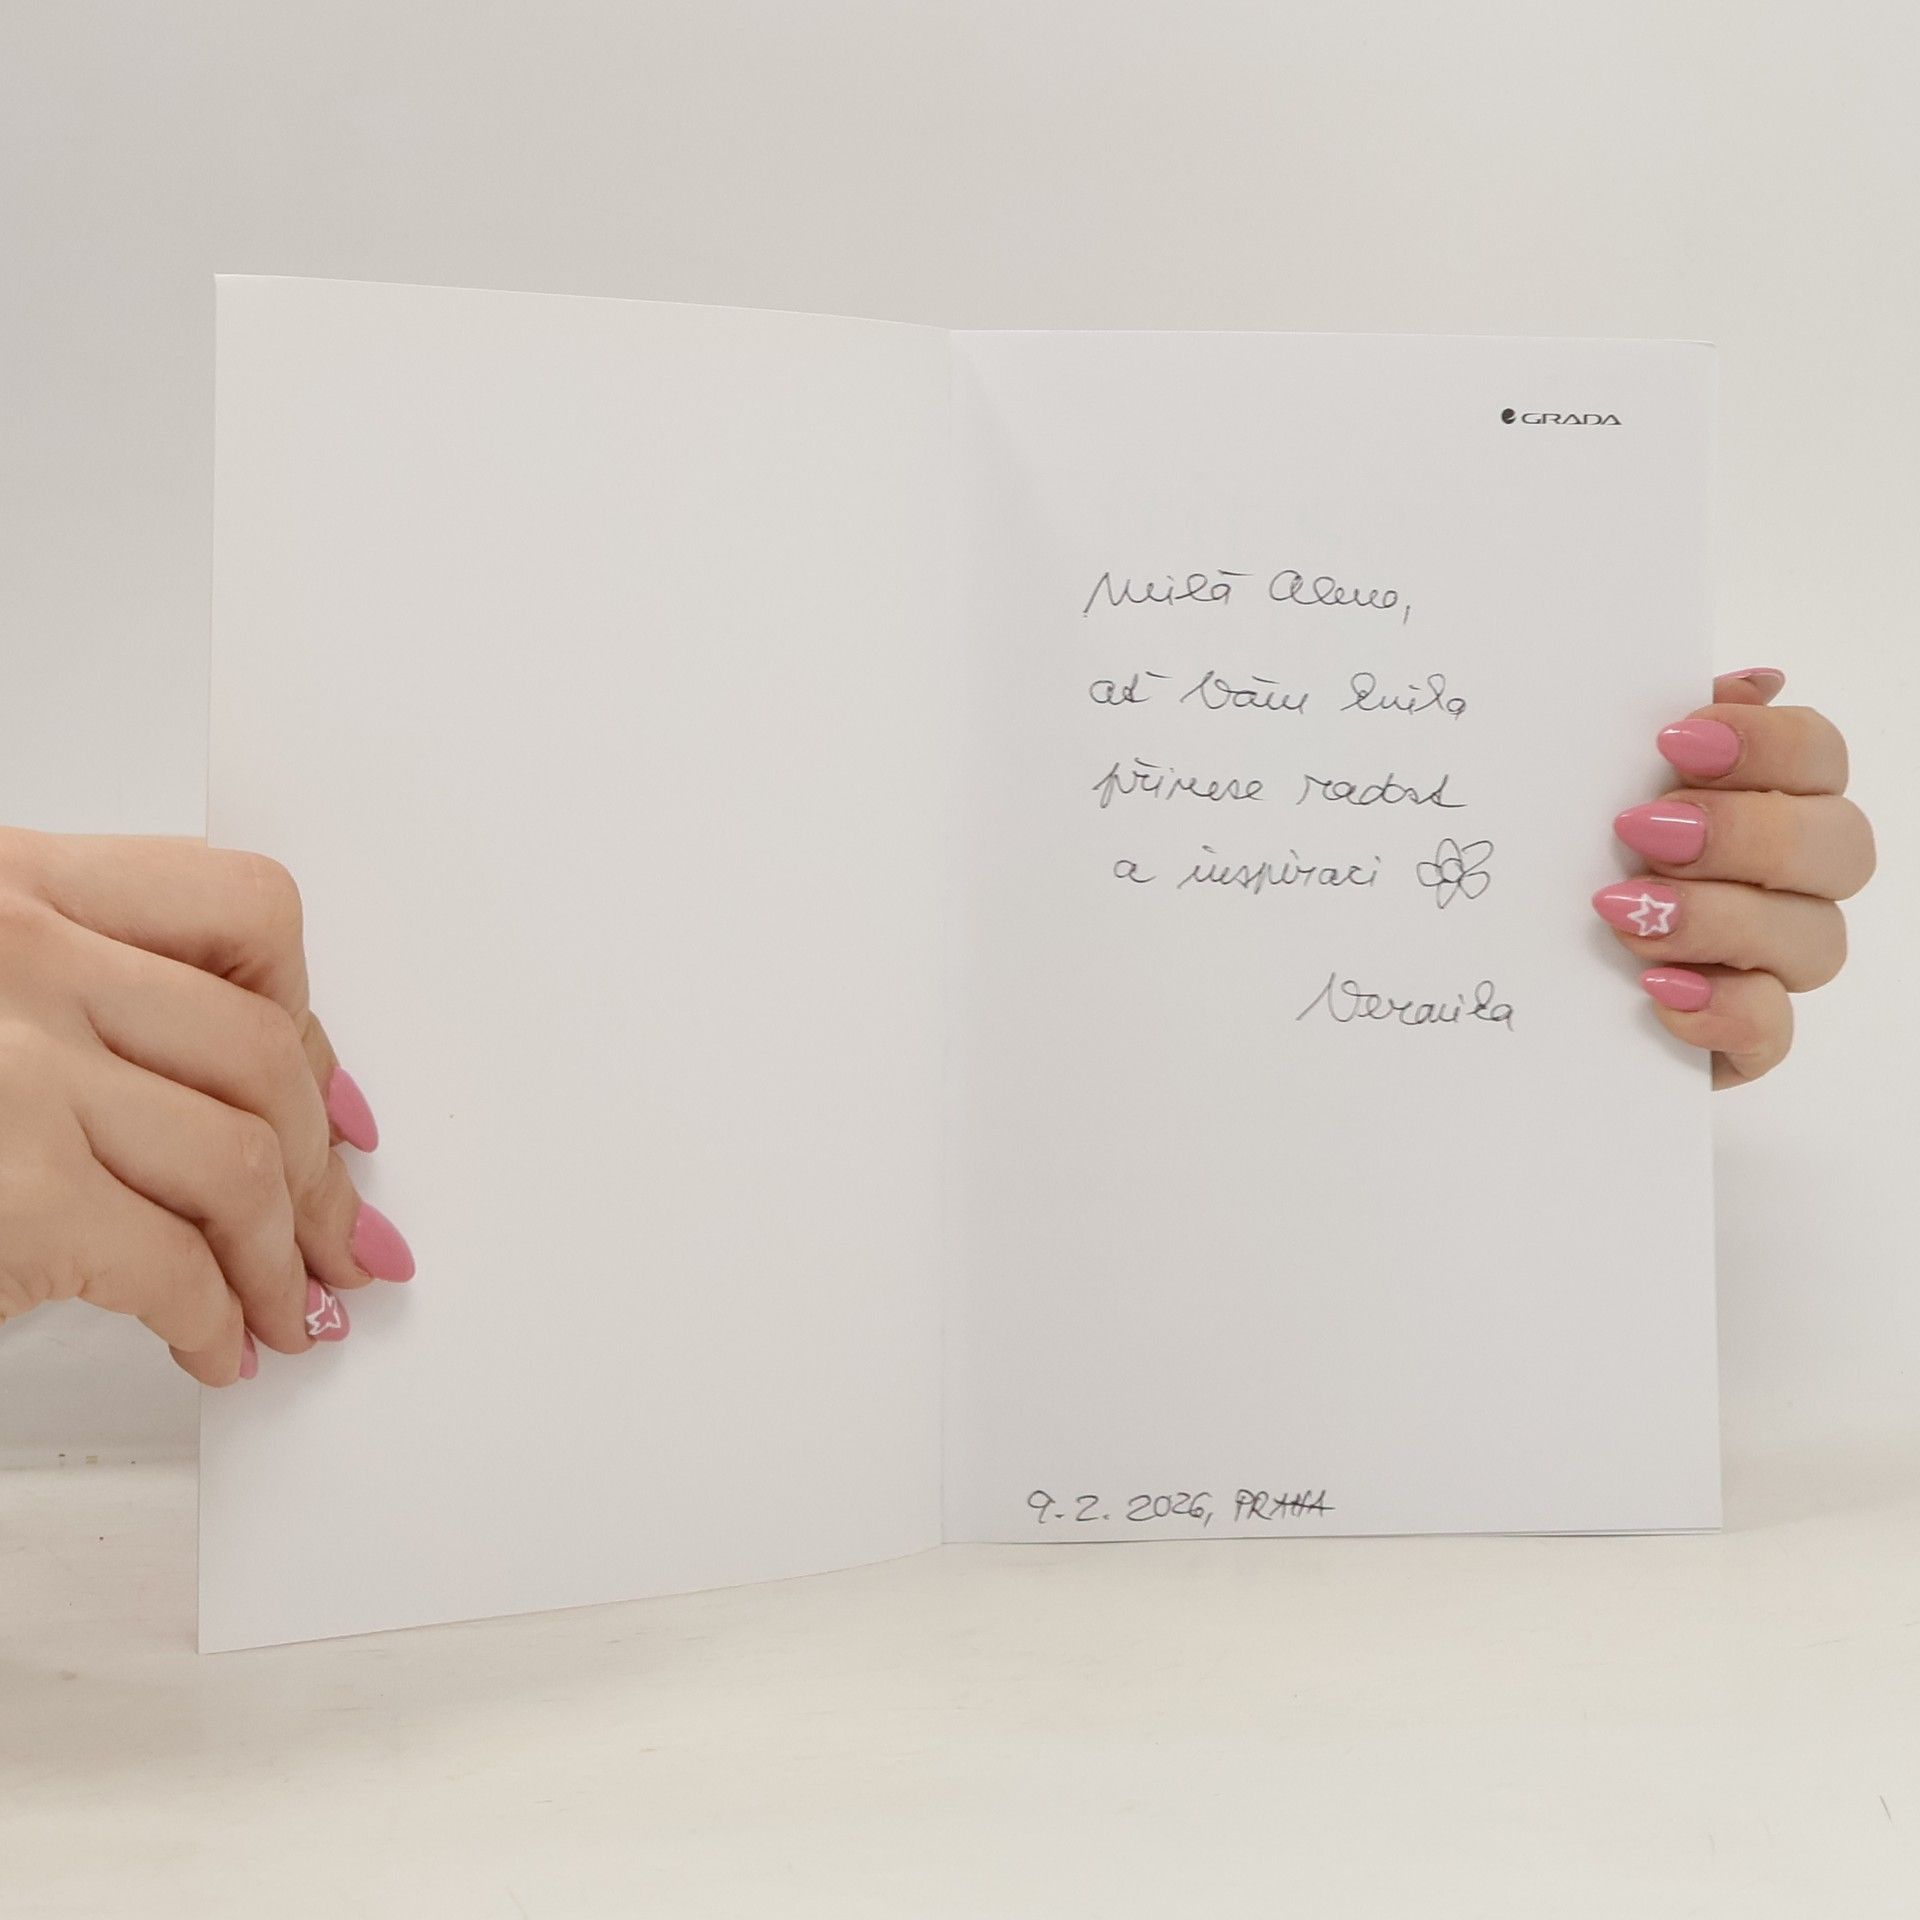 GRADA
Milá Aleno,
ať Vám kniha
přinese radost
a inspiraci
Veronika
9.2.2026, PRAHA